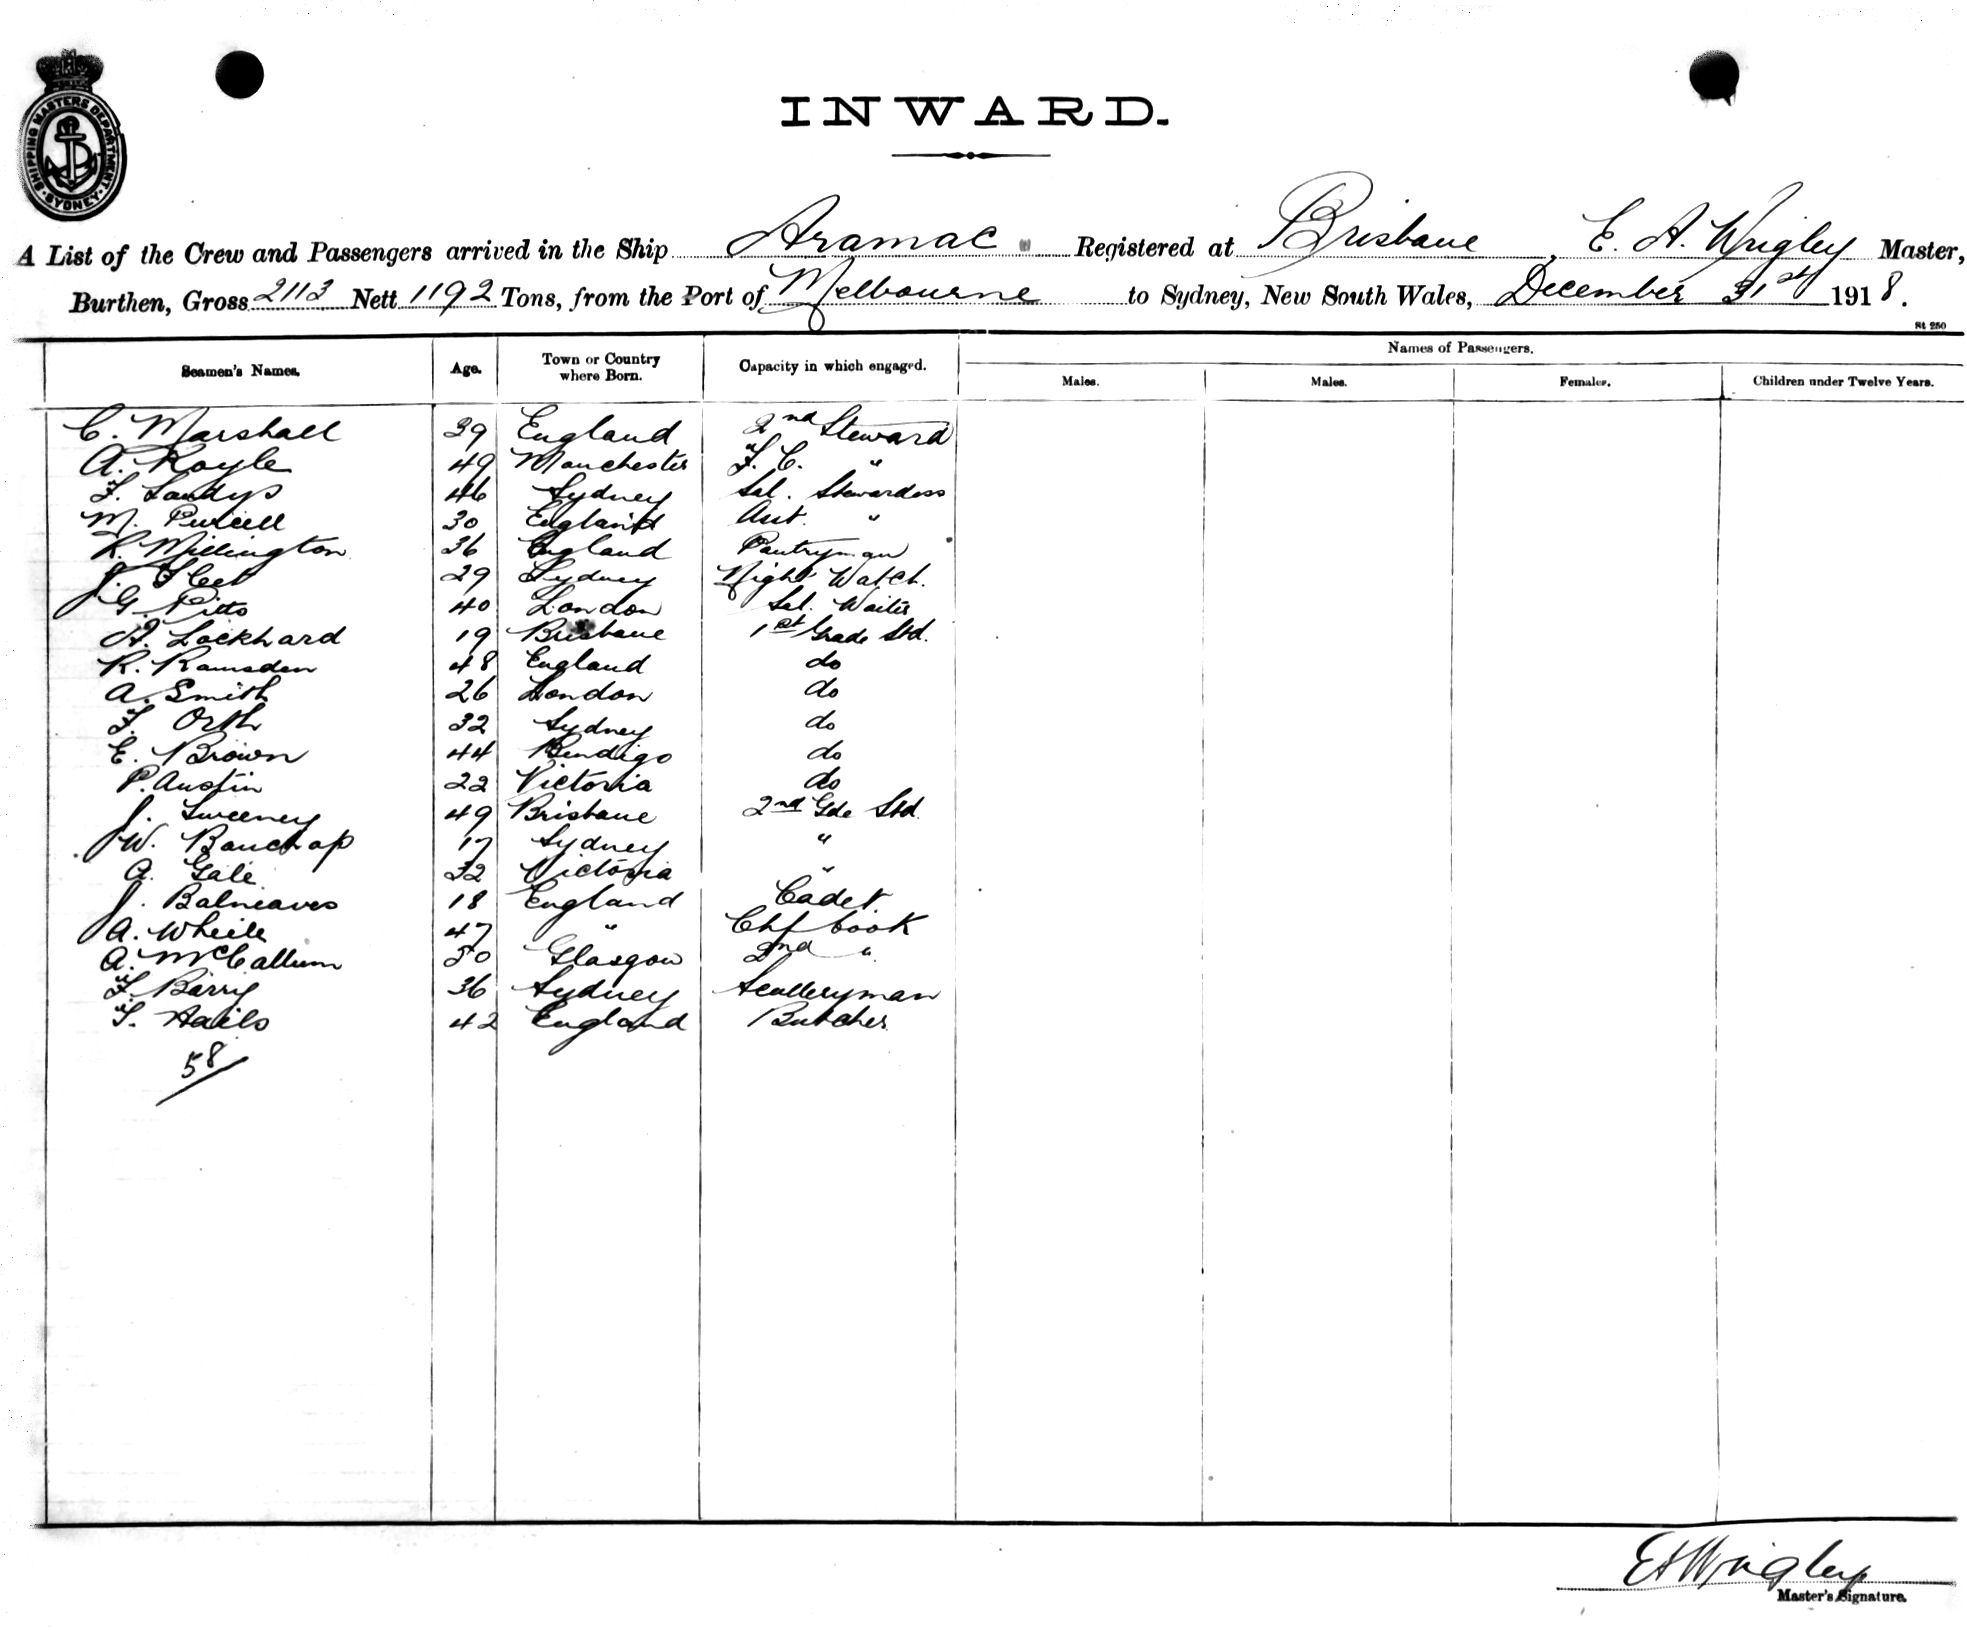 SHIPPING MASTERS DEPARTMENT. SYDNEY.
INWARD.
A List of the Crew and Passengers arrived in the Ship Aramac Registered at Brisbane, E. A. Wrigley Master,
Burthen, Gross 2113 Nett 1192 Tons, from the Port of Melbourne to Sydney, New South Wales, December 31st 1918.
St 250
Seamen's Names. Age. Town or Country where Born. Capacity in which engaged. Names of Passengers.
Males. Males. Females. Children under Twelve Years.
C. Marshall 39 England 2nd Steward
A. Royle 49 Manchester F. C. "
F. Sandys 46 Sydney Sal. Stewardess
M. Purcell 30 England Asst. "
R. Millington 36 England Pantryman
J. Fleet 29 Sydney Night Watch.
G. Pitts 40 London Sal. Waiter
A. Lockhard 19 Brisbane 1st Grade Std.
R. Ramsden 48 England do
A. Smith 26 London do
F. Orth 32 Sydney do
E. Brown 44 Bendigo do
P. Austin 22 Victoria do
J. Sweeney 49 Brisbane 2nd Gde Std.
W. Bauchop 17 Sydney "
A. Gale 32 Victoria "
J. Balneaves 18 England Cadet
A. 47 " Chf Cook
A. McCallum 50 Glasgow 2nd "
F. Barry 36 Sydney Sculleryman
T. Hails 42 England Butcher
58
EAWrigley
Master's Signature.